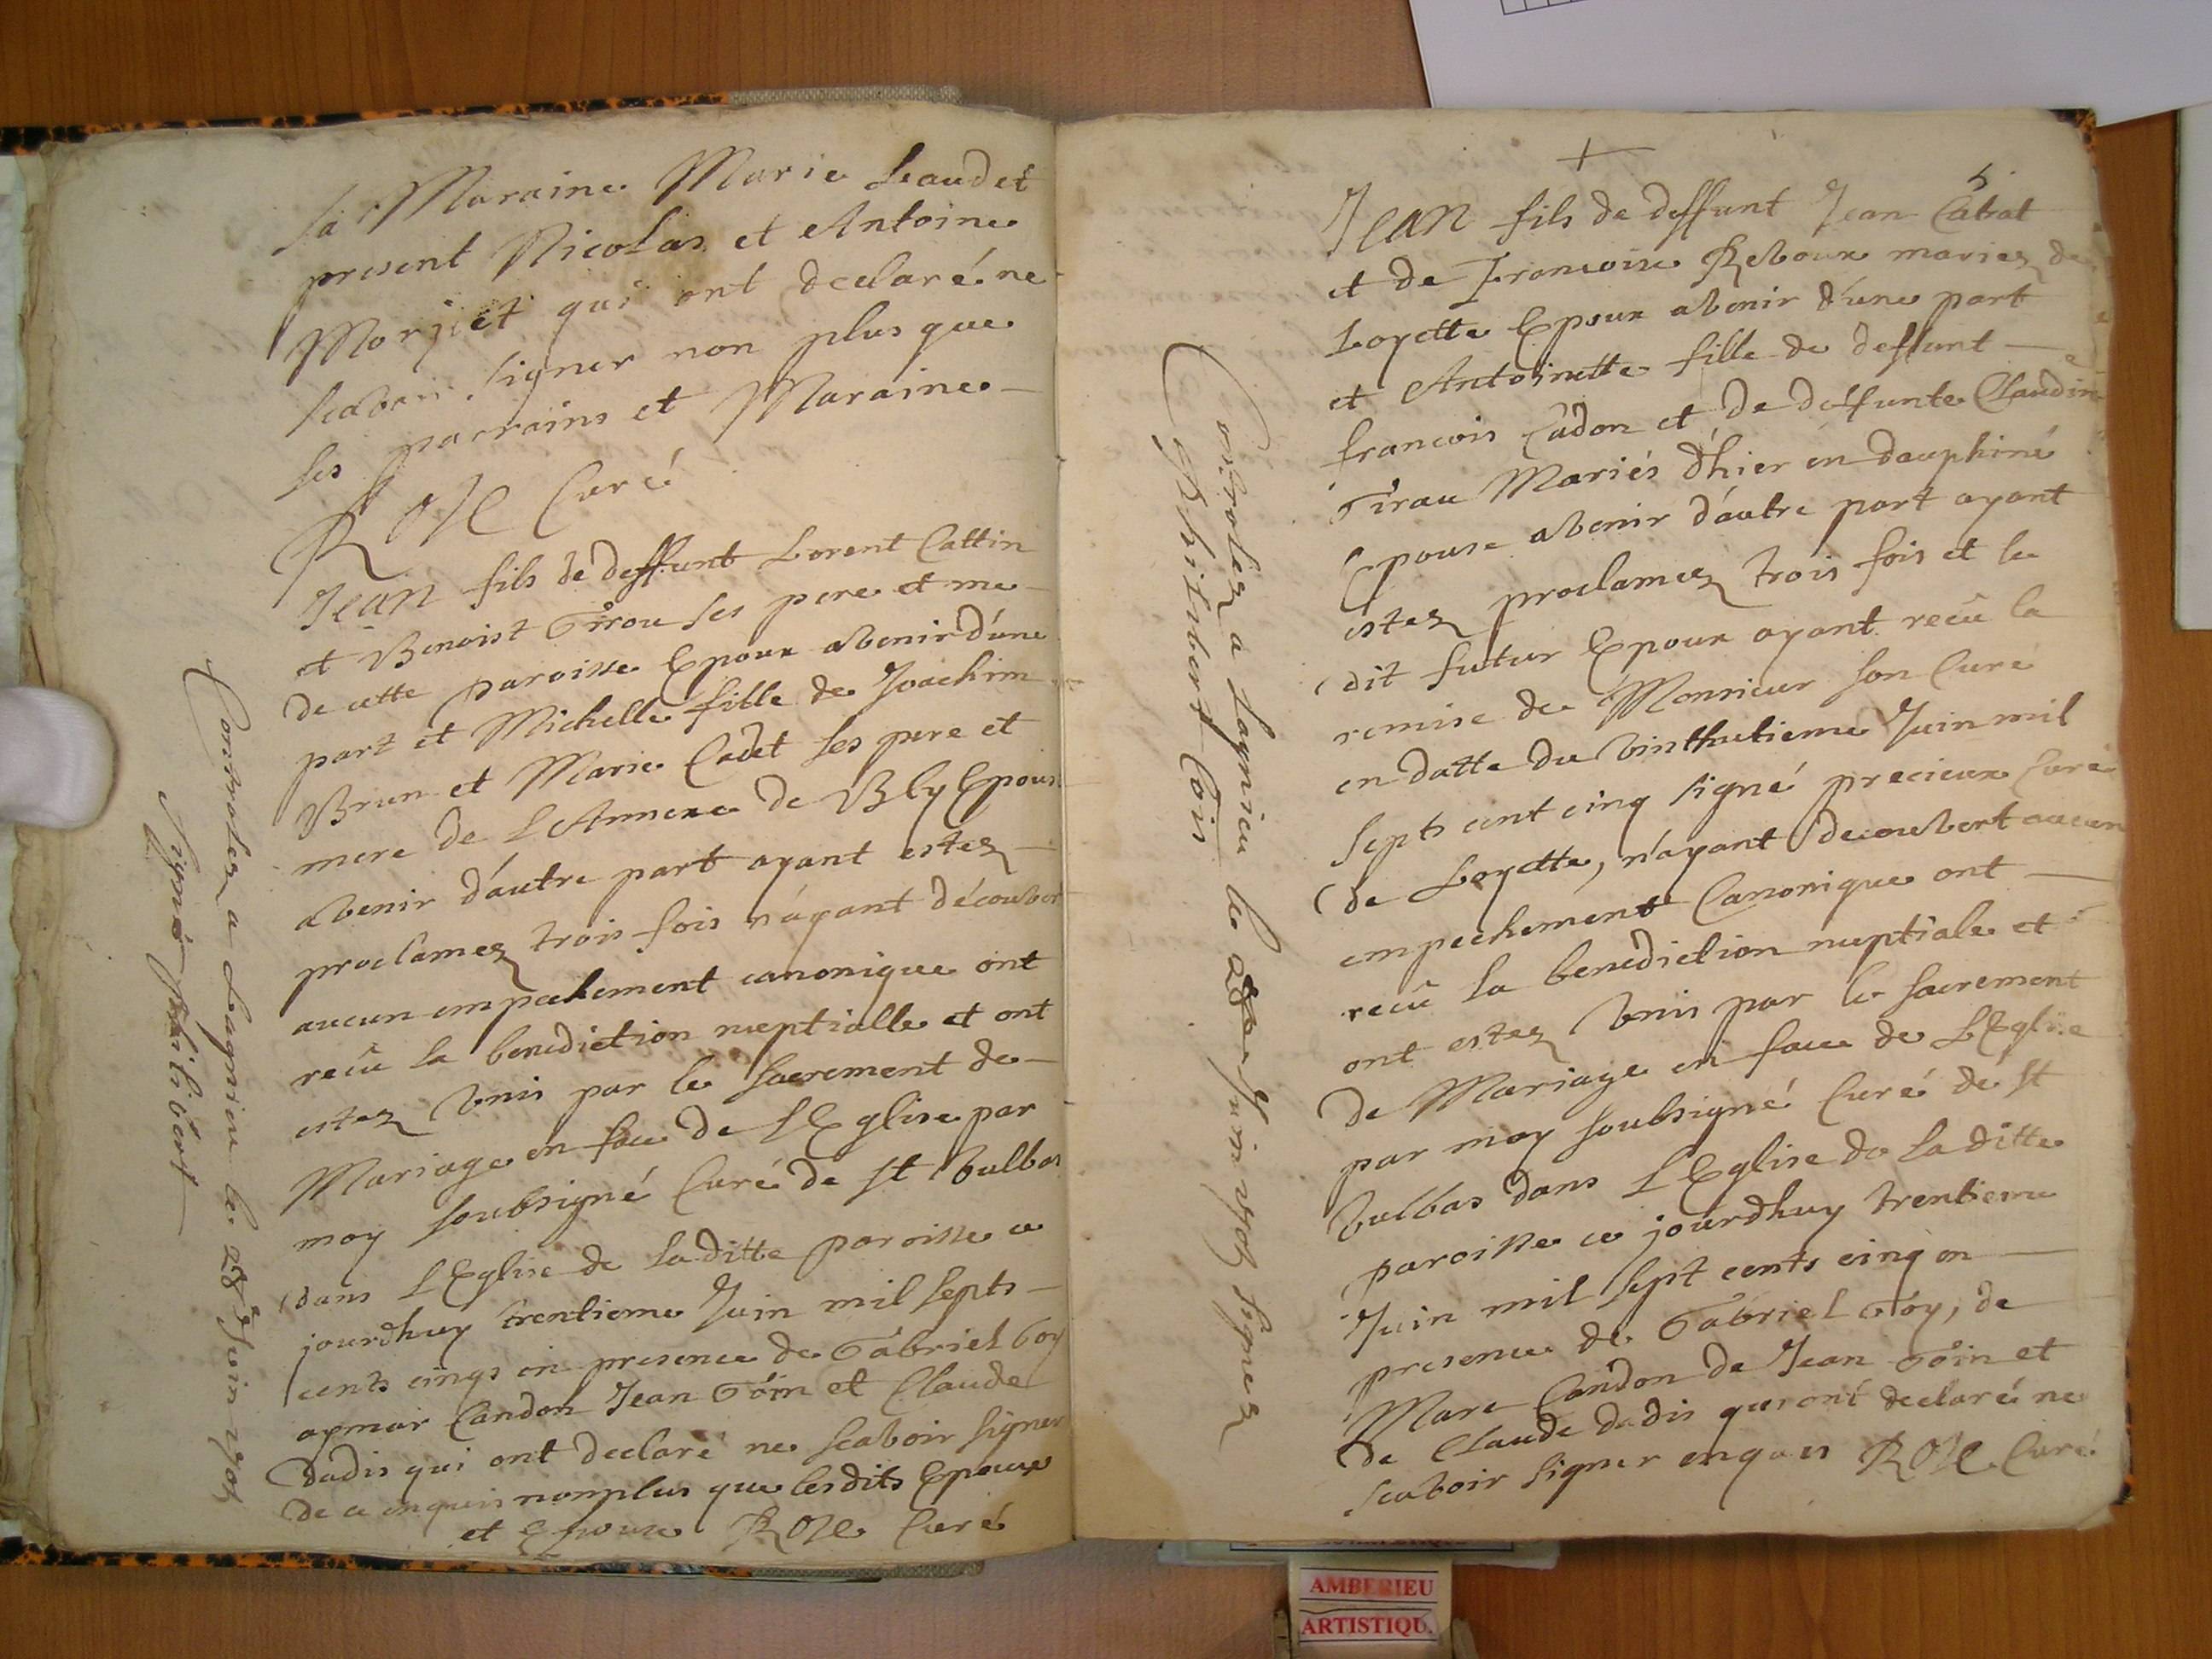 sa Maraine Marie Leaudet
present Nicolas et Antoine
Morjiet qui ont declaré ne
scavoir signer non plus que
les parrains et Maraine
ROZE Curé
JEAN fils de deffunt Lorent Cattin
et Benoist Girou ses pere et me
de cette paroisse Epoux avenir d'une
part et Michelle fille de Joachim
Brun et Marie Cadet ses pere et
mere de L'Annexe de Bly Epous
avenir d'autre part ayant estez
proclamez trois fois n'ayant découver
aucun empechement canonique ont
recû la benediction nuptialle et ont
estez Unis par le sacrement de
Mariage en face de L'Eglise par
moy soubsigné Curé de St Vulbas
dans L'Eglise de Laditte paroisse ce
jourdhuy trentieme Juin mil septs
cents cinqs en presence de Gabriel Goy
aymar Candon Jean Goin et Claude
dadis qui ont declaré ne scavoir signer
de ce enquis nonplus que lesdits Epoux
et Epouse ROZE Curé
Controlez a Lagnieu le 28e Juin
signé philibert
+
5
JEAN fils de deffunt Jean Cabat
et de Francoise Reboux mariez de
Loyette Epoux avenir d'une part
et Antoinette fille de deffunt
francois Cadon et de deffunte Claudin
Girau Mariés d'hier en dauphiné
Epouse avenir d'autre part ayant
estez proclamez trois fois et le
dit futur Epoux ayant recû la
remise de Monsieur son Curé
en datte du vinthutieme Juin mil
septs cent cinq signé precieux Curé
de Loyette, n'ayant decouvert aucun
empechement Canonique ont
recû la benediction nuptiale et
ont estez Unis par le sacrement
de Mariage en face de L'Eglise
par moy soubsigné Curé de St
Vulbas dans L'Eglise de Laditte
paroisse ce jourdhuy trentieme
Juin mil sept cents cinq en
presence de Gabriel Goy, de
Marc Candon de Jean Goin et
de Claude dadis qui ont declaré ne
scavoir signer enquis ROZE Curé
Controlez a Lagnieu le 28e Juin signez
Philibert
AMBERIEU
ARTISTIQU